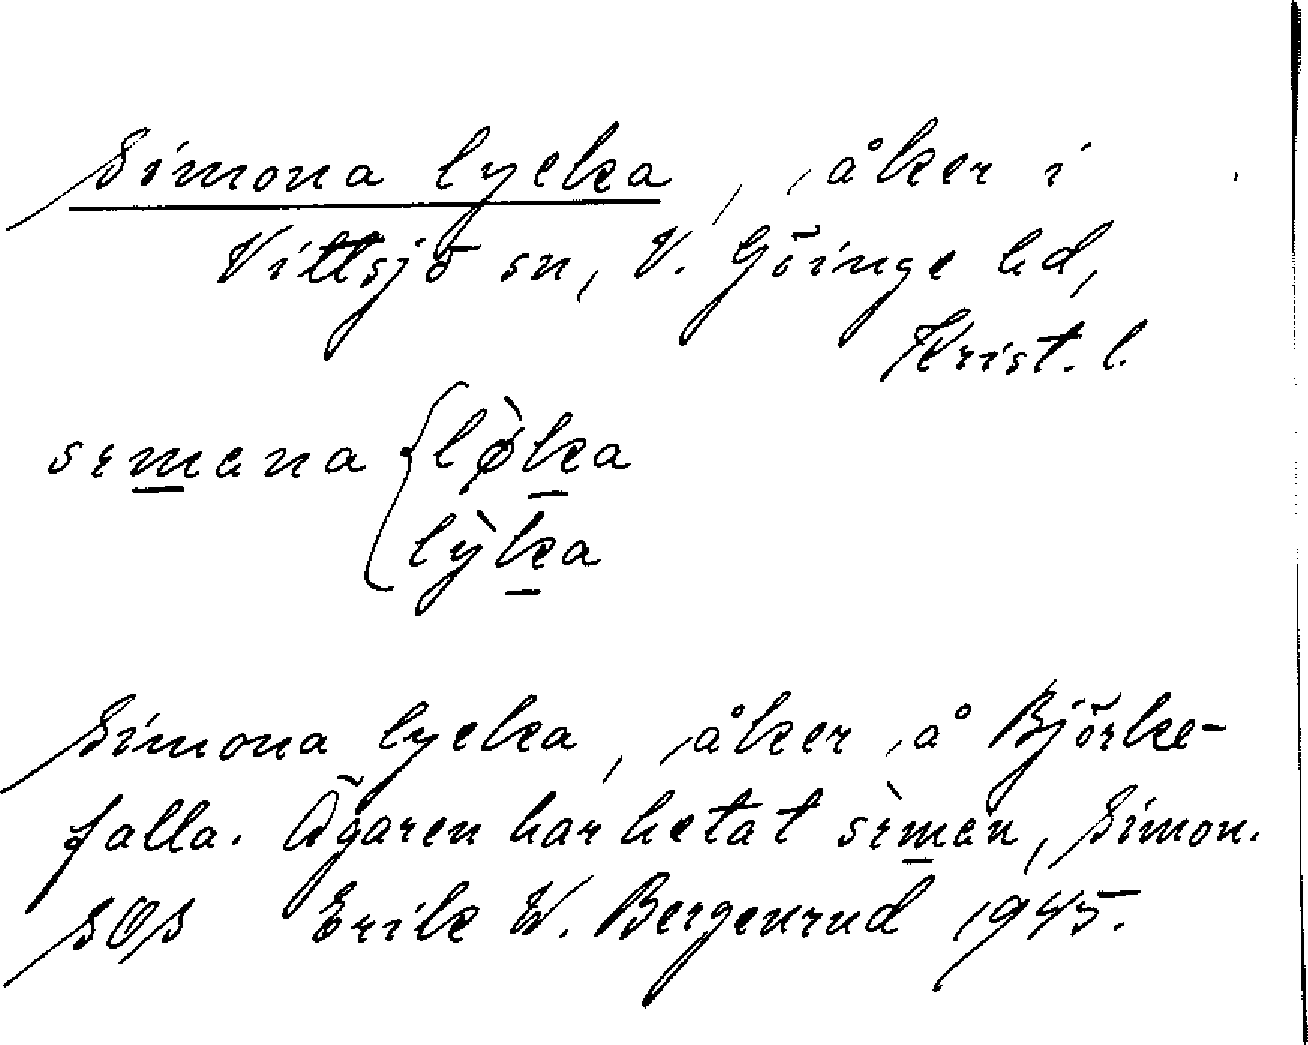 Simona lycka, åker i
Vittsjö sn, V. Göinge hd,
Krist. l.
sɪmana { lø̀ka
lỳka
Simona lycka, åker å Björke-
falla. Ägaren har hetat sɪ̀man, Simon.
SOS Erik W. Bergenrud 1945.